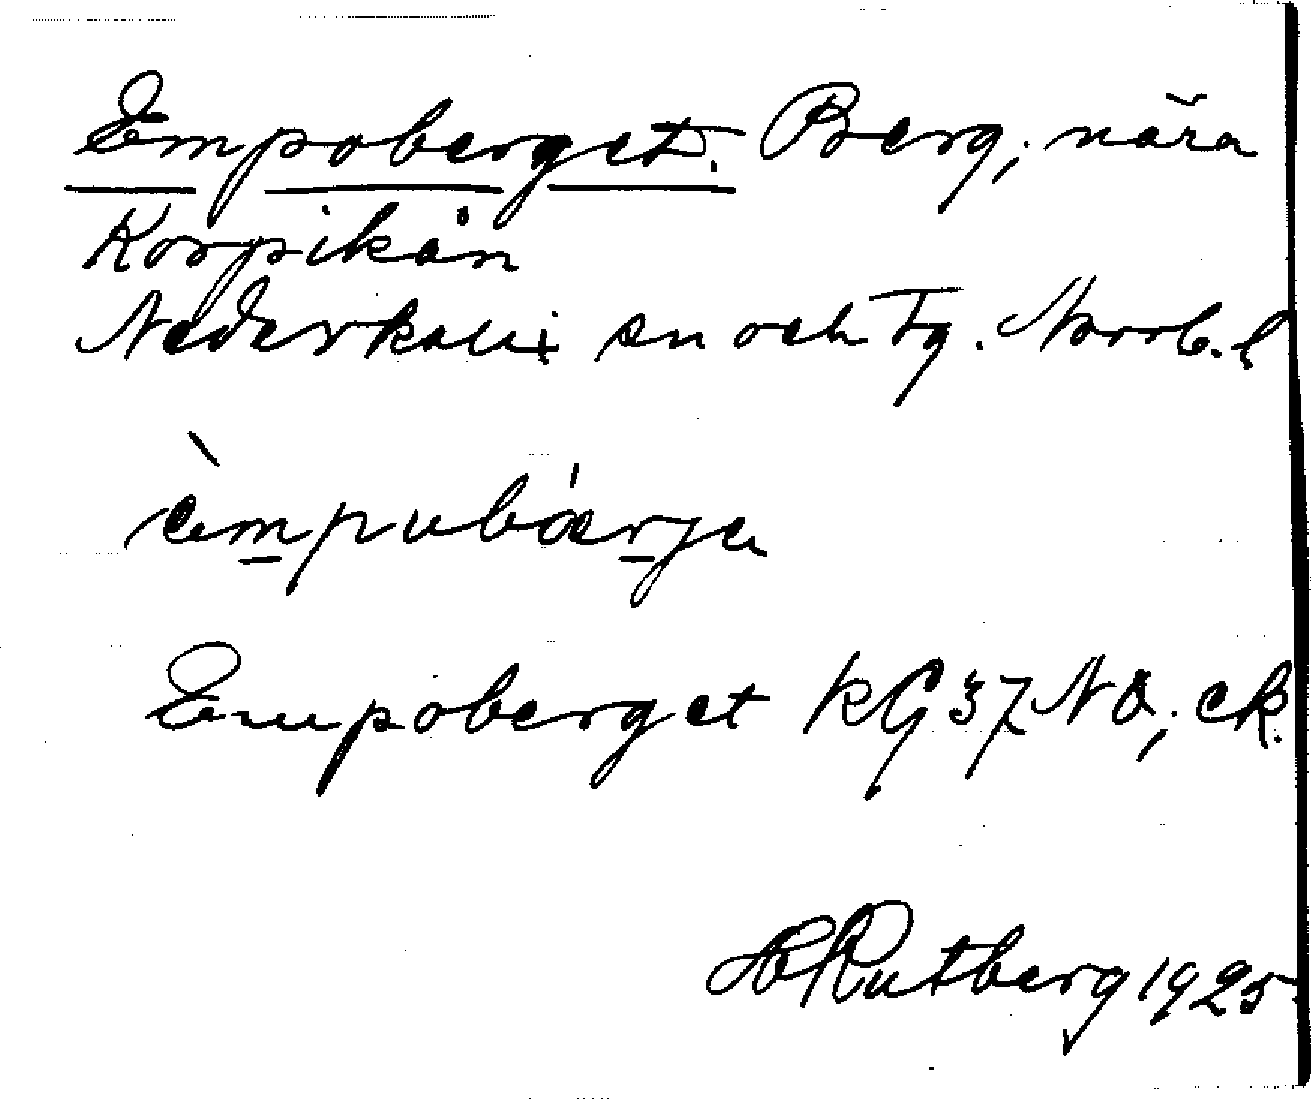 Empoberget. Berg, nära
Korpikån
Nederkalix sn och Tg. Norrb. l
èmpubárja
Empoberget KG 37 NO; ek.
H Rutberg 1925.